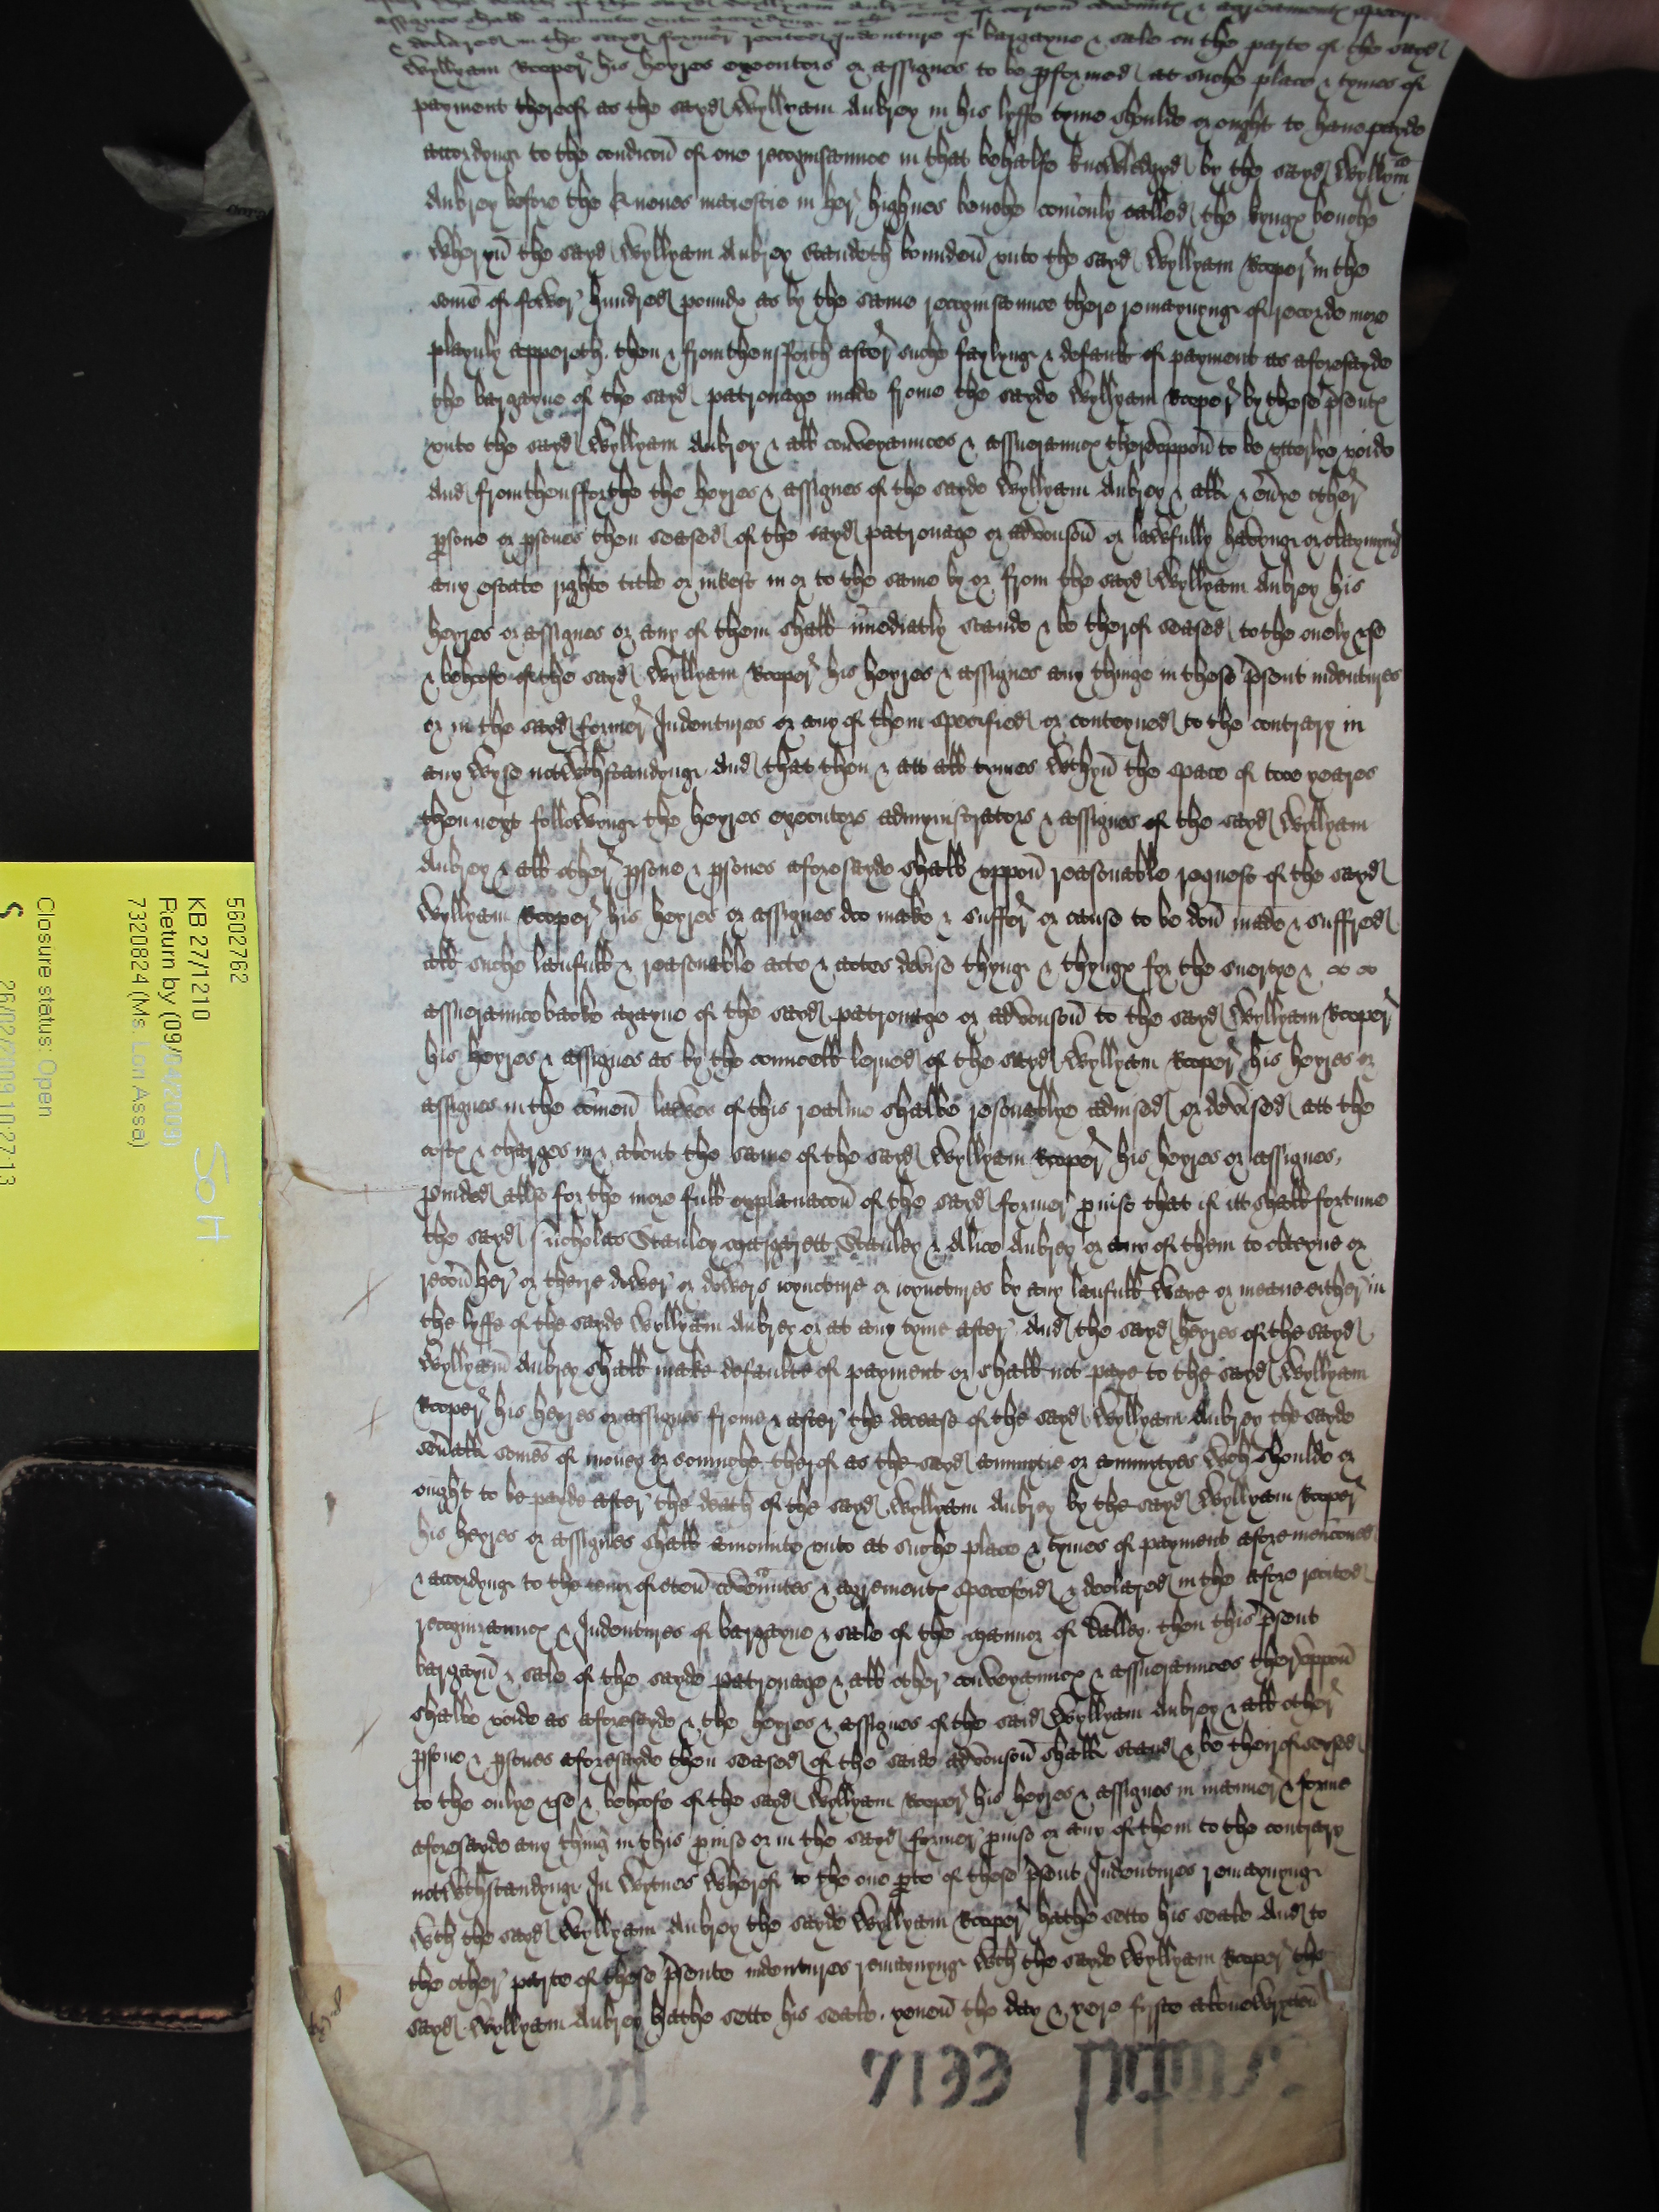 assignes shall amounte unto accordyng to the
& declared in the sayd former recited Indenture of bargayne & sale on the parte of the sayd
Wyllyam Rooper his heyres executors or assignes to be pformed at suche place & tymes of
payment therof as the sayd Wyllyam Aubrey in his lyffe tyme shoulde or ought to have payde
accordyng to the condicon of one recognisaunce in that behalfe knowledgyd by the sayd Wyllyam
Aubrey before the Quenes maiestie in her highnes benche comonly called the kyngs benche
Wheryn the sayd Wyllyam Aubrey standeth bounden unto the sayd Wyllyam Rooper in the
some of fower hundred pounds as by the same recognisaunce there remaynyng of recorde more
playnly appereth. then & fromthensforth after suche faylyng & default of payment as aforesayde
the bargayne of the sayd patronage made frome the sayde Wyllyam Rooper by these psents
unto the sayd Wyllyam Aubrey & all conveyaunces & assueraunces theruppon to be utterlye voide
And fromthensforthe the heyres & assignes of the sayde Wyllyam Aubrey & all & evye other
psone or psones then seased of the sayd patronage or advouson or lawfully havyng or claymyng
any estate righte title or intrest in or to the same by or from the sayd Wyllyam Aubrey his
heyres or assignes or any of them shall imediatly stande & be therof seased to the onely use
& behoofe of the sayd Wyllyam Rooper his heyres & assignes any thinge in these psent indentures
or in the sayd former Indentures or any of them specified or conteyned to the contrary in
any wyse notwthstandyng. And that then & att all tymes wthyn the space of two yeares
then next followyng the heyres executors admynistrators & assignes of the sayd Wyllyam
Aubrey & all other psone & psones aforesayde shall uppon reasonable request of the sayd
Wyllyam Rooper his heyres or assignes doo make & suffer or cause to be don made & suffred
all suche laufull & reasonable acte & actes devise thyng & thyngs for the suertye &
assueraunce backe agayne of the sayd patronage or advouson to the sayd Wyllyam Rooper
his heyres & assignes as by the councell lerned of the sayd Wyllyam Rooper his heyres or
assignes in the comen lawes of this realme shalbe resonablye advised or devised att the
costs & charges in & about the same of the sayd Wyllyam Rooper his heyres or assignes,
pvided also for the more full explanacon of the sayd former pviso that if itt shall fortune
the sayd Nicholas Stanley Margarett Stanley & Alice Aubrey or any of them to obteyne or
recov her or theyre dower or dowers ioyncture or ioynctures by any laufull waye or meane either in
the lyffe of the sayde Wyllyam Aubrey or at any tyme after. And the sayd heyres of the sayd
Wyllyam Aubrey shall make defaulte of payment or shall not paye to the sayd Wyllyam
Rooper his heyres or assignes frome & after the decease of the sayd Wyllyam Aubrey the sayde
sevall somes of money or somuche therof as the sayd annuytie or annuytyes wch shoulde or
ought to be payde after the death of the sayd Wyllyam Aubrey by the sayd Wyllyam Rooper
his heyres or assignes shall amounte unto at suche place & tymes of payment aforemencioned
& accordyng to the tenor of cten covenntes & agrements specefeid & declared in the afore recited
recognizaunce & Indentures of bargayne & sale of the mannor of Dalley. then this psent
bargayn & sale of the sayde patronage & all other conveyaunces & assueraunces theruppon
shalbe voide as aforesayde & the heyres & assignes of the said Wyllyam Aubrey & all other
psone & psones aforesayde then seased of the saide advouson shall stand & be therof seased
to the onlye use & behoofe of the sayd Wyllyam Rooper his heyres & assignes in manner & forme
aforesayde any thing in this pviso or in the sayd former pviso or any of them to the contrary
notwthstandyng. In wytnes wherof to the one pte of these psent Indentures remaynyng
wth the sayd Wyllyam Aubrey the sayde Wyllyam Rooper hathe sette his seale And to
the other parte of these psente indentures remaynyng wth the sayde Wyllyam Rooper the
sayd Wyllyam Aubrey hathe sette his seale. yeven the day & yere fyrste abovewrytten
7133
5602762
KB 27/1210
Return by (09/04/2009)
7320824 (Ms. Lori Assa)
Closure status: Open
26/02/2009 10:27:13
SoH